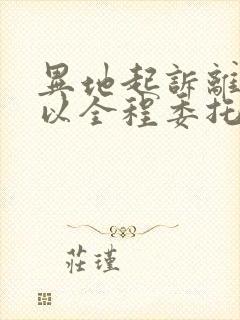 異地起訴離
以全程委托
莊瑾